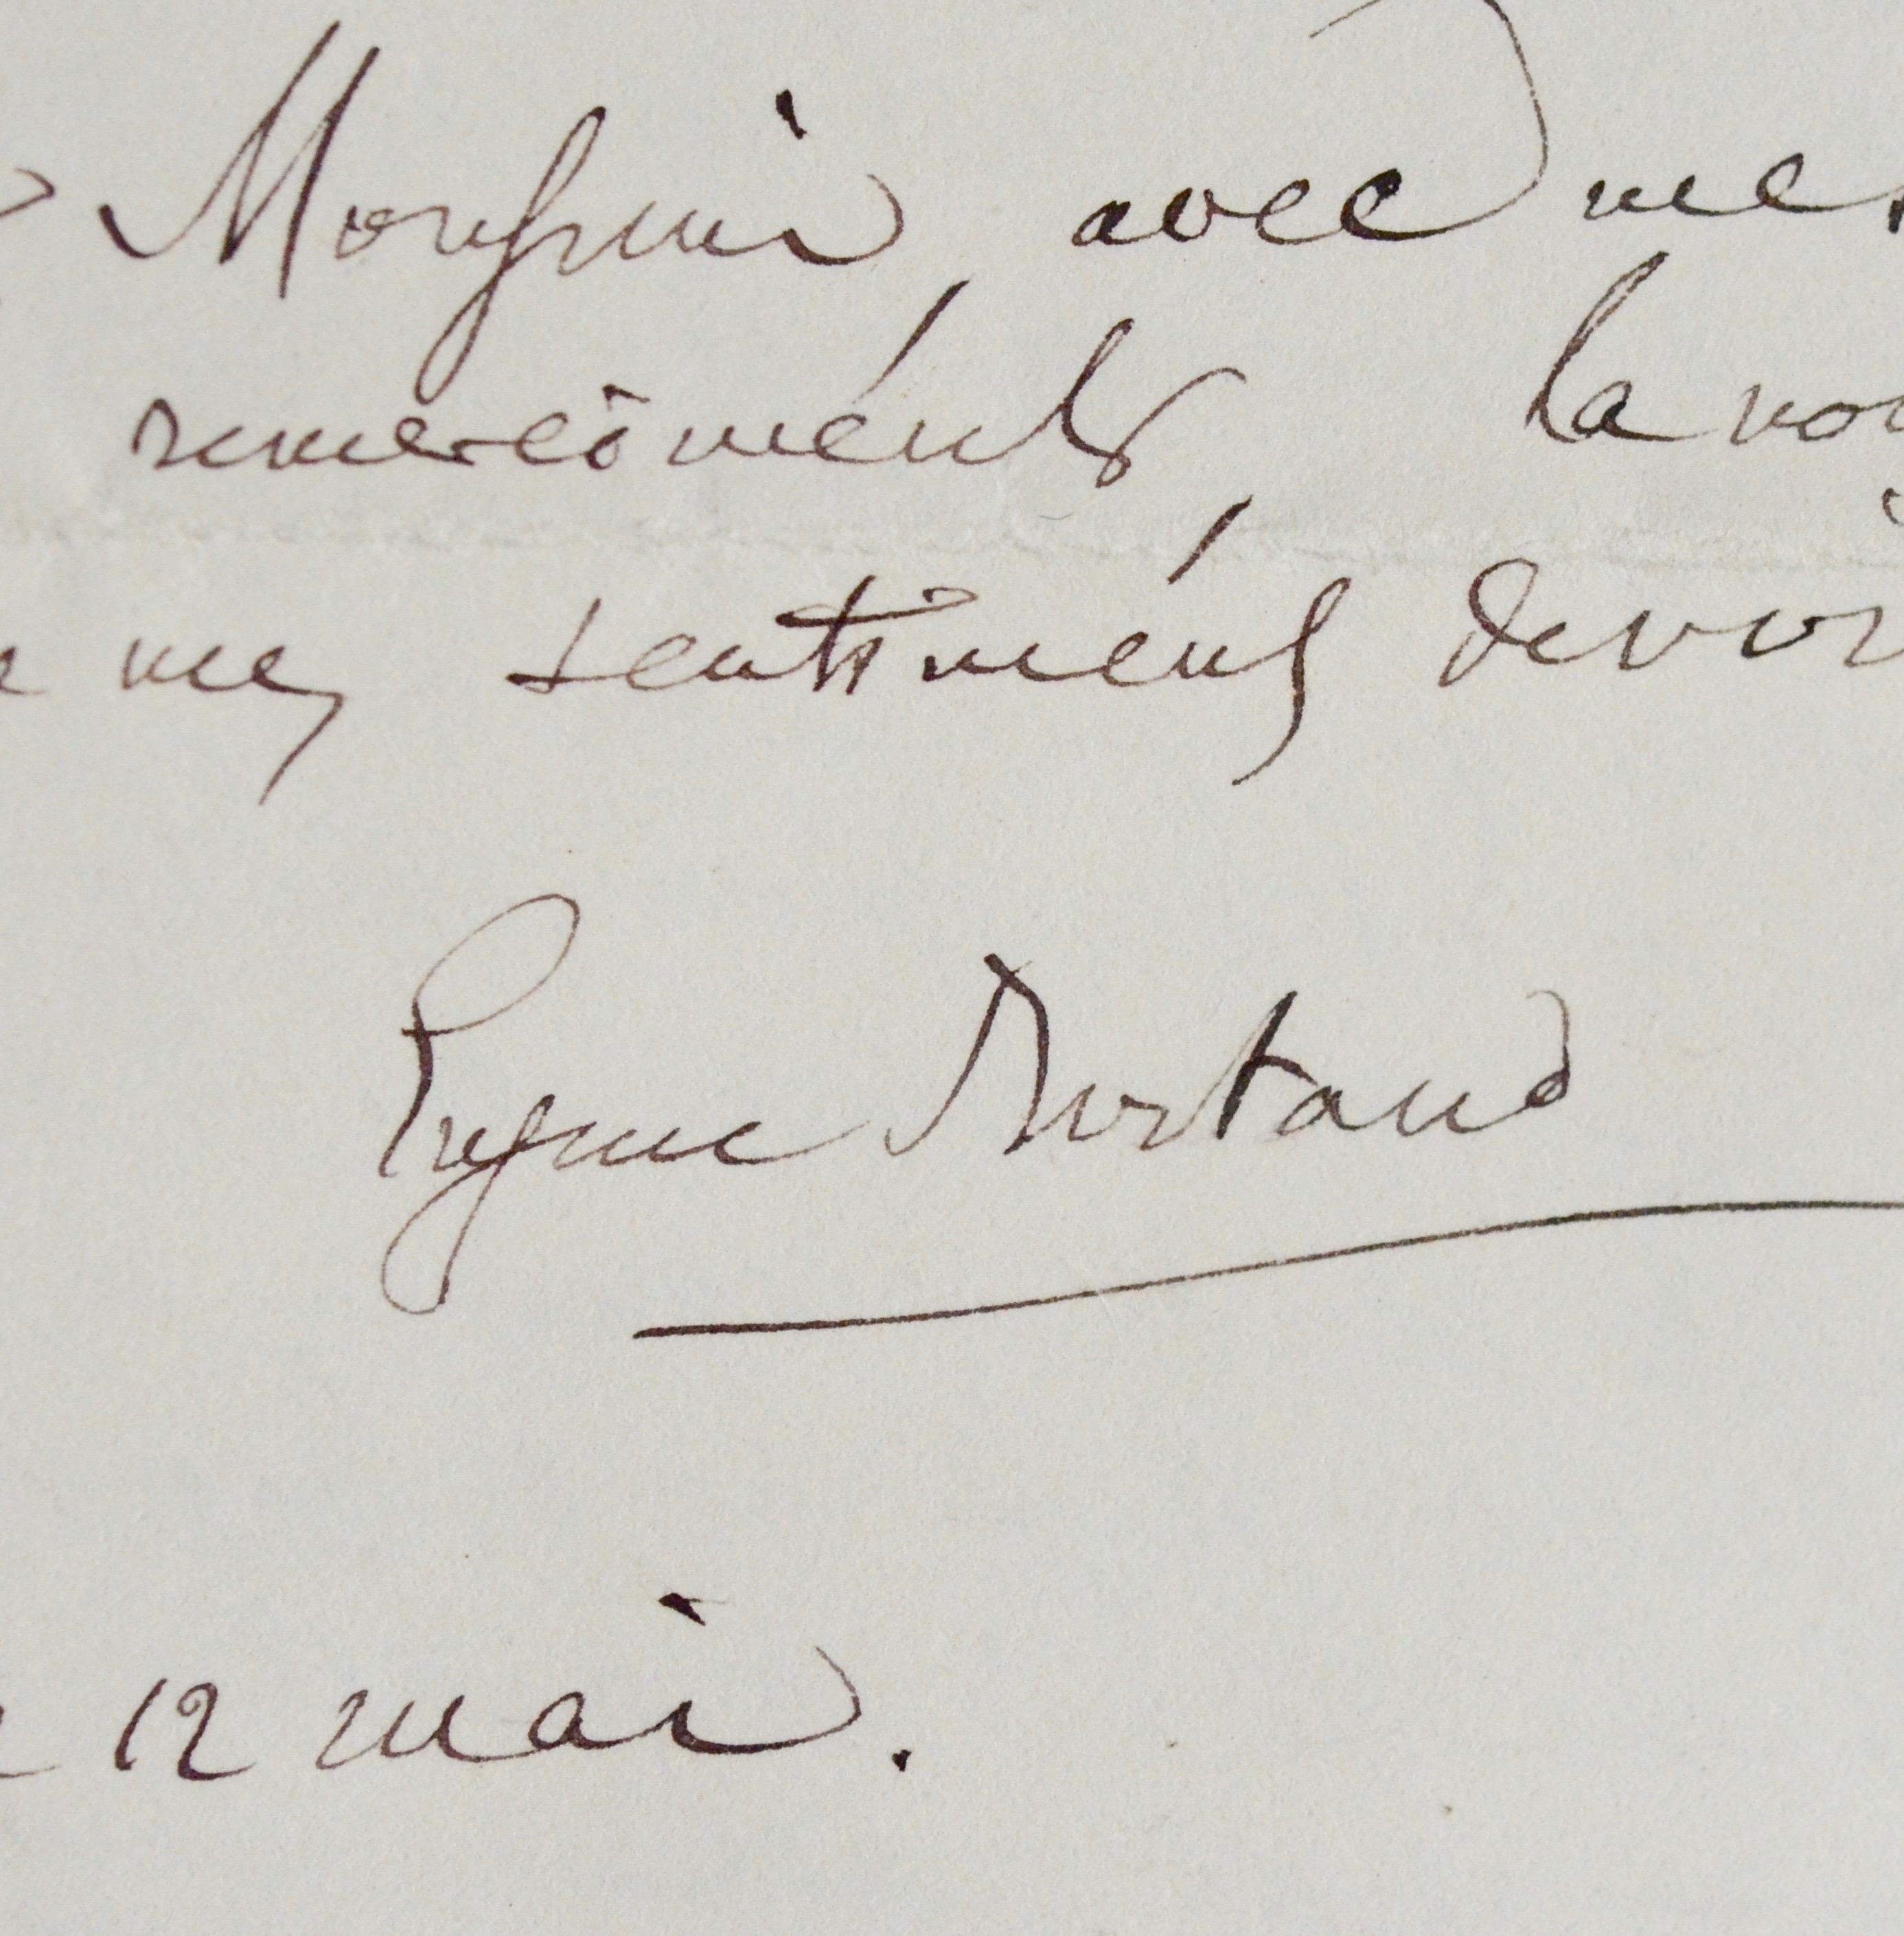 Monsieur, avec mes
remerciments, la nou
mes sentiments dévoué
Eugene Nortaud
12 mai.